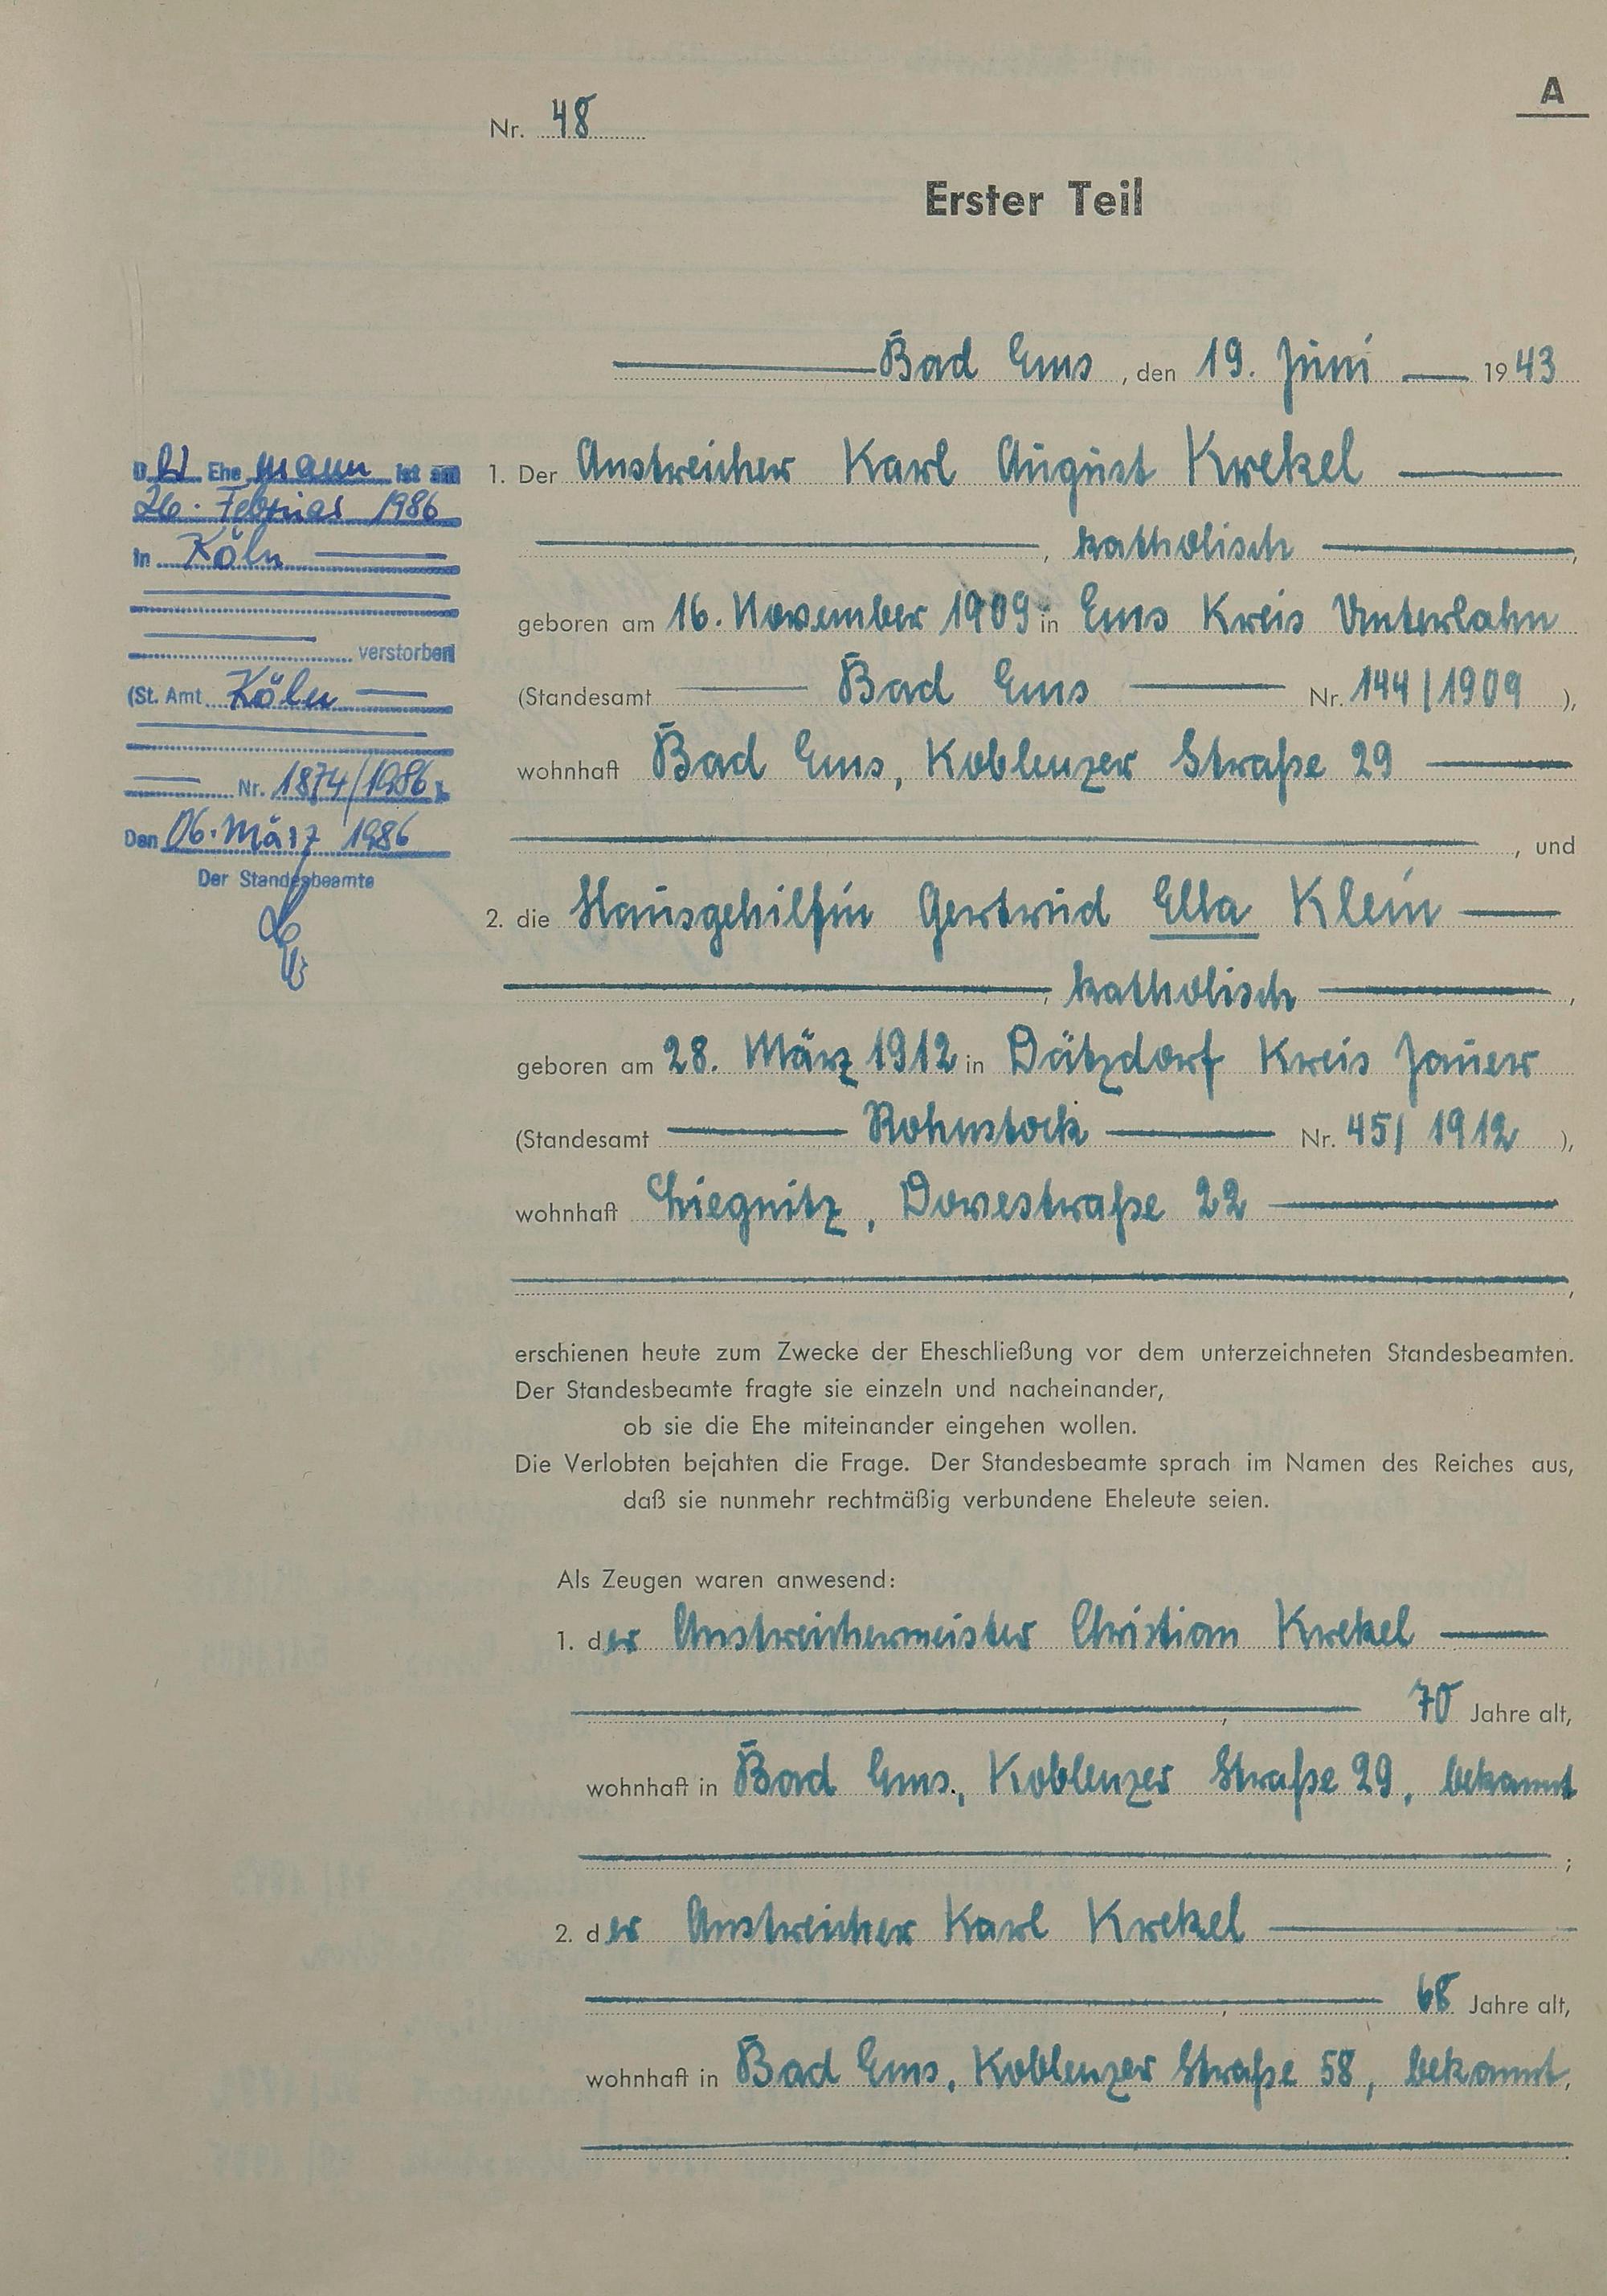 A
Nr. 48
Erster Teil
Bad Ems, den 19. Juni 1943
Der Ehemann ist am
26. Februar 1986
in Köln
verstorben
(St. Amt Köln
Nr. 1874/1986).
Den 06. März 1986
Der Standesbeamte
1. Der Anstreicher Karl August Krekel
, katholisch ,
geboren am 16. November 1909 in Ems Kreis Unterlahn
(Standesamt Bad Ems Nr. 144/1909 ),
wohnhaft Bad Ems, Koblenzer Straße 29
, und
2. die Hausgehilfin Gertrud Ella Klein
, katholisch ,
geboren am 28. März 1912 in Dätzdorf Kreis Jauer
(Standesamt Rohnstock Nr. 45/1912 ),
wohnhaft Liegnitz, Dovestraße 22
,
erschienen heute zum Zwecke der Eheschließung vor dem unterzeichneten Standesbeamten.
Der Standesbeamte fragte sie einzeln und nacheinander,
ob sie die Ehe miteinander eingehen wollen.
Die Verlobten bejahten die Frage. Der Standesbeamte sprach im Namen des Reiches aus,
daß sie nunmehr rechtmäßig verbundene Eheleute seien.
Als Zeugen waren anwesend:
1. der Anstreichermeister Christian Krekel
, 70 Jahre alt,
wohnhaft in Bad Ems, Koblenzer Straße 29, bekannt
;
2. der Anstreicher Karl Krekel
, 68 Jahre alt,
wohnhaft in Bad Ems, Koblenzer Straße 58, bekannt,